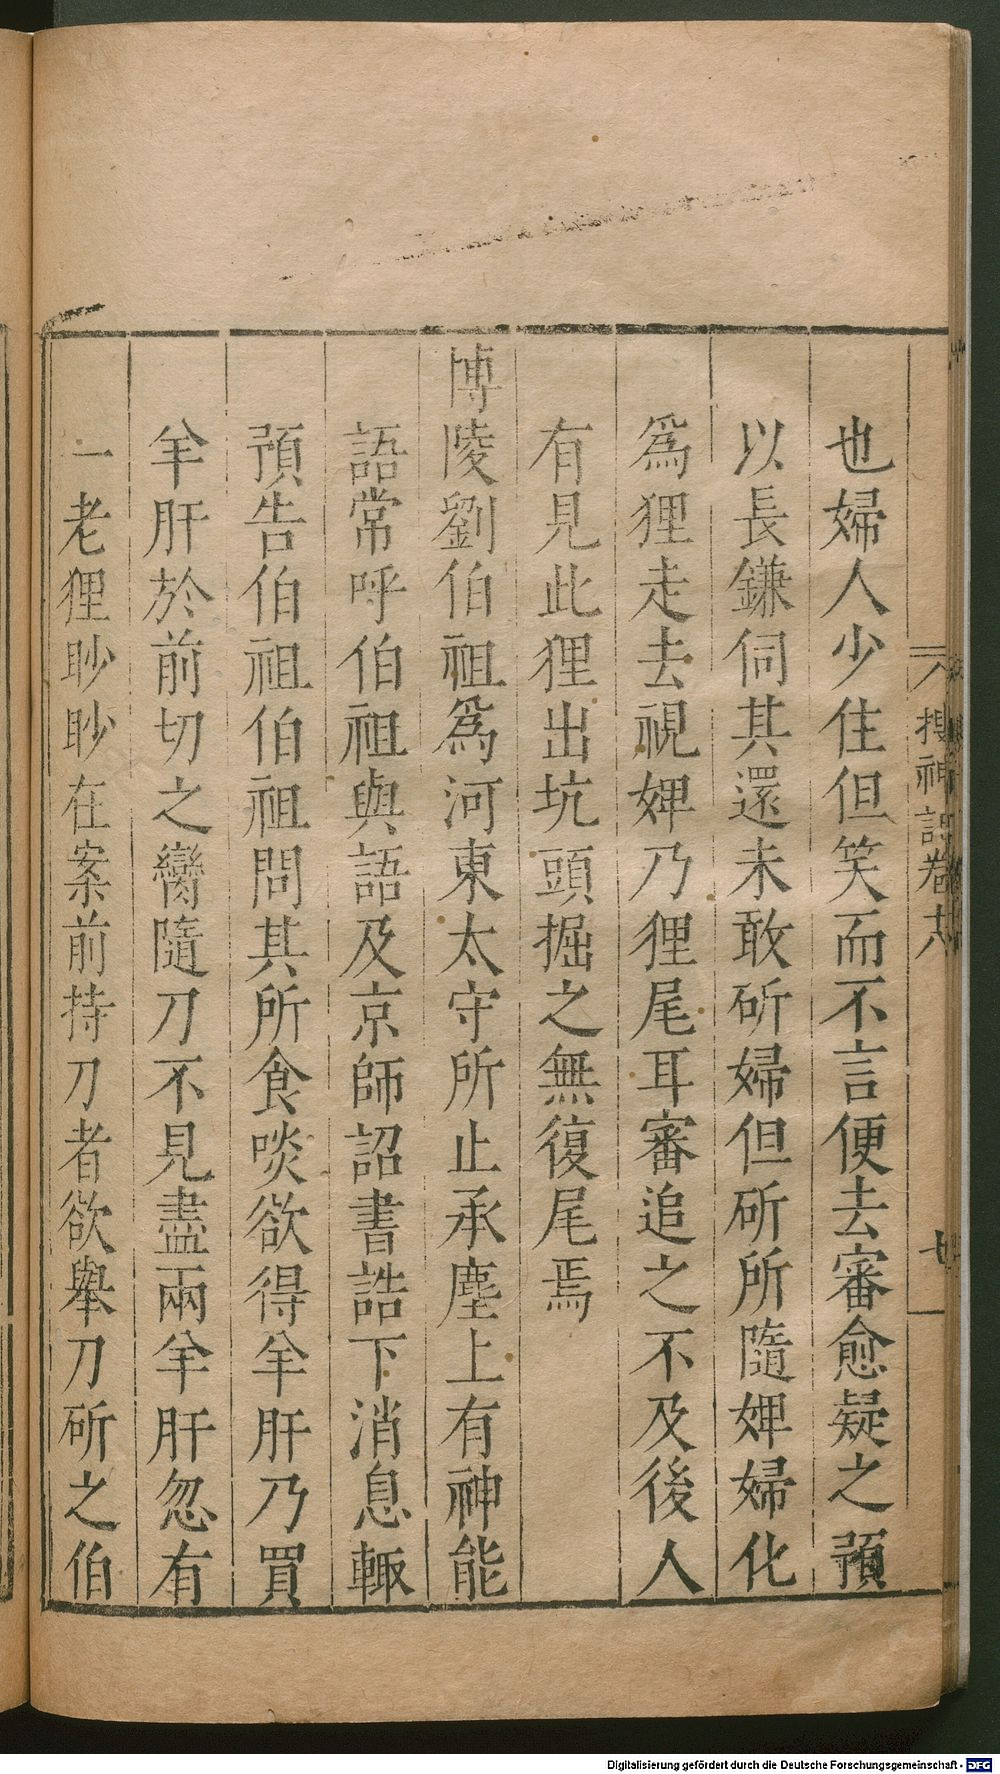 搜神記卷十八
七
也婦人少住但笑而不言便去審愈疑之預
以長鎌伺其還未敢斫婦但斫所隨婢婦化
爲狸走去視婢乃狸尾耳審追之不及後人
有見此狸出坑頭掘之無復尾焉
博陵劉伯祖爲河東太守所止承塵上有神能
語常呼伯祖與語及京師詔書誥下消息輙
預告伯祖伯祖問其所食啖欲得羊肝乃買
羊肝於前切之臠隨刀不見盡兩羊肝忽有
一老狸眇眇在案前持刀者欲舉刀斫之伯
Digitalisierung gefördert durch die Deutsche Forschungsgemeinschaft - DFG